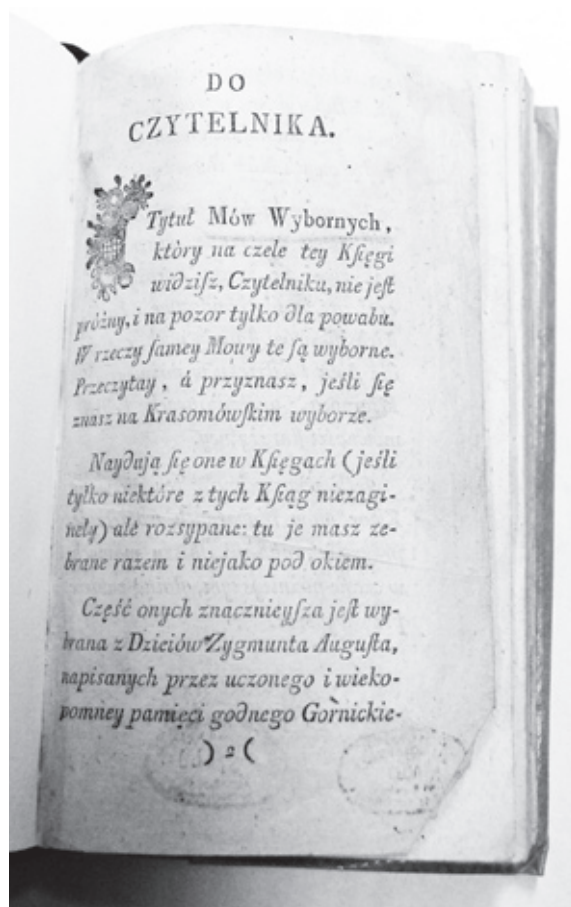 DO
CZYTELNIKA.
Tytuł Mów Wybornych,
który na czele tey Kſięgi
widziſz, Czytelniku, nie jeſt
próżny, i na pozor tylko dla powabu.
W rzeczy ſamey Mowy te ſą wyborne.
Przeczytay, á przyznasz, jeśli ſię
znasz na Krasomówſkim wyborze.
Naydują ſię one w Kſięgach (jeśli
tylko niektóre z tych Kſiąg niezagi-
nęły) ale rozsypane: tu je masz ze-
brane razem i niejako pod okiem.
Część onych znacznieyſza jeſt wy-
brana z Dzieiów Zygmunta Auguſta,
napisanych przez uczonego i wieko-
pomney pamięci godnego Gornickie-
) 2 (